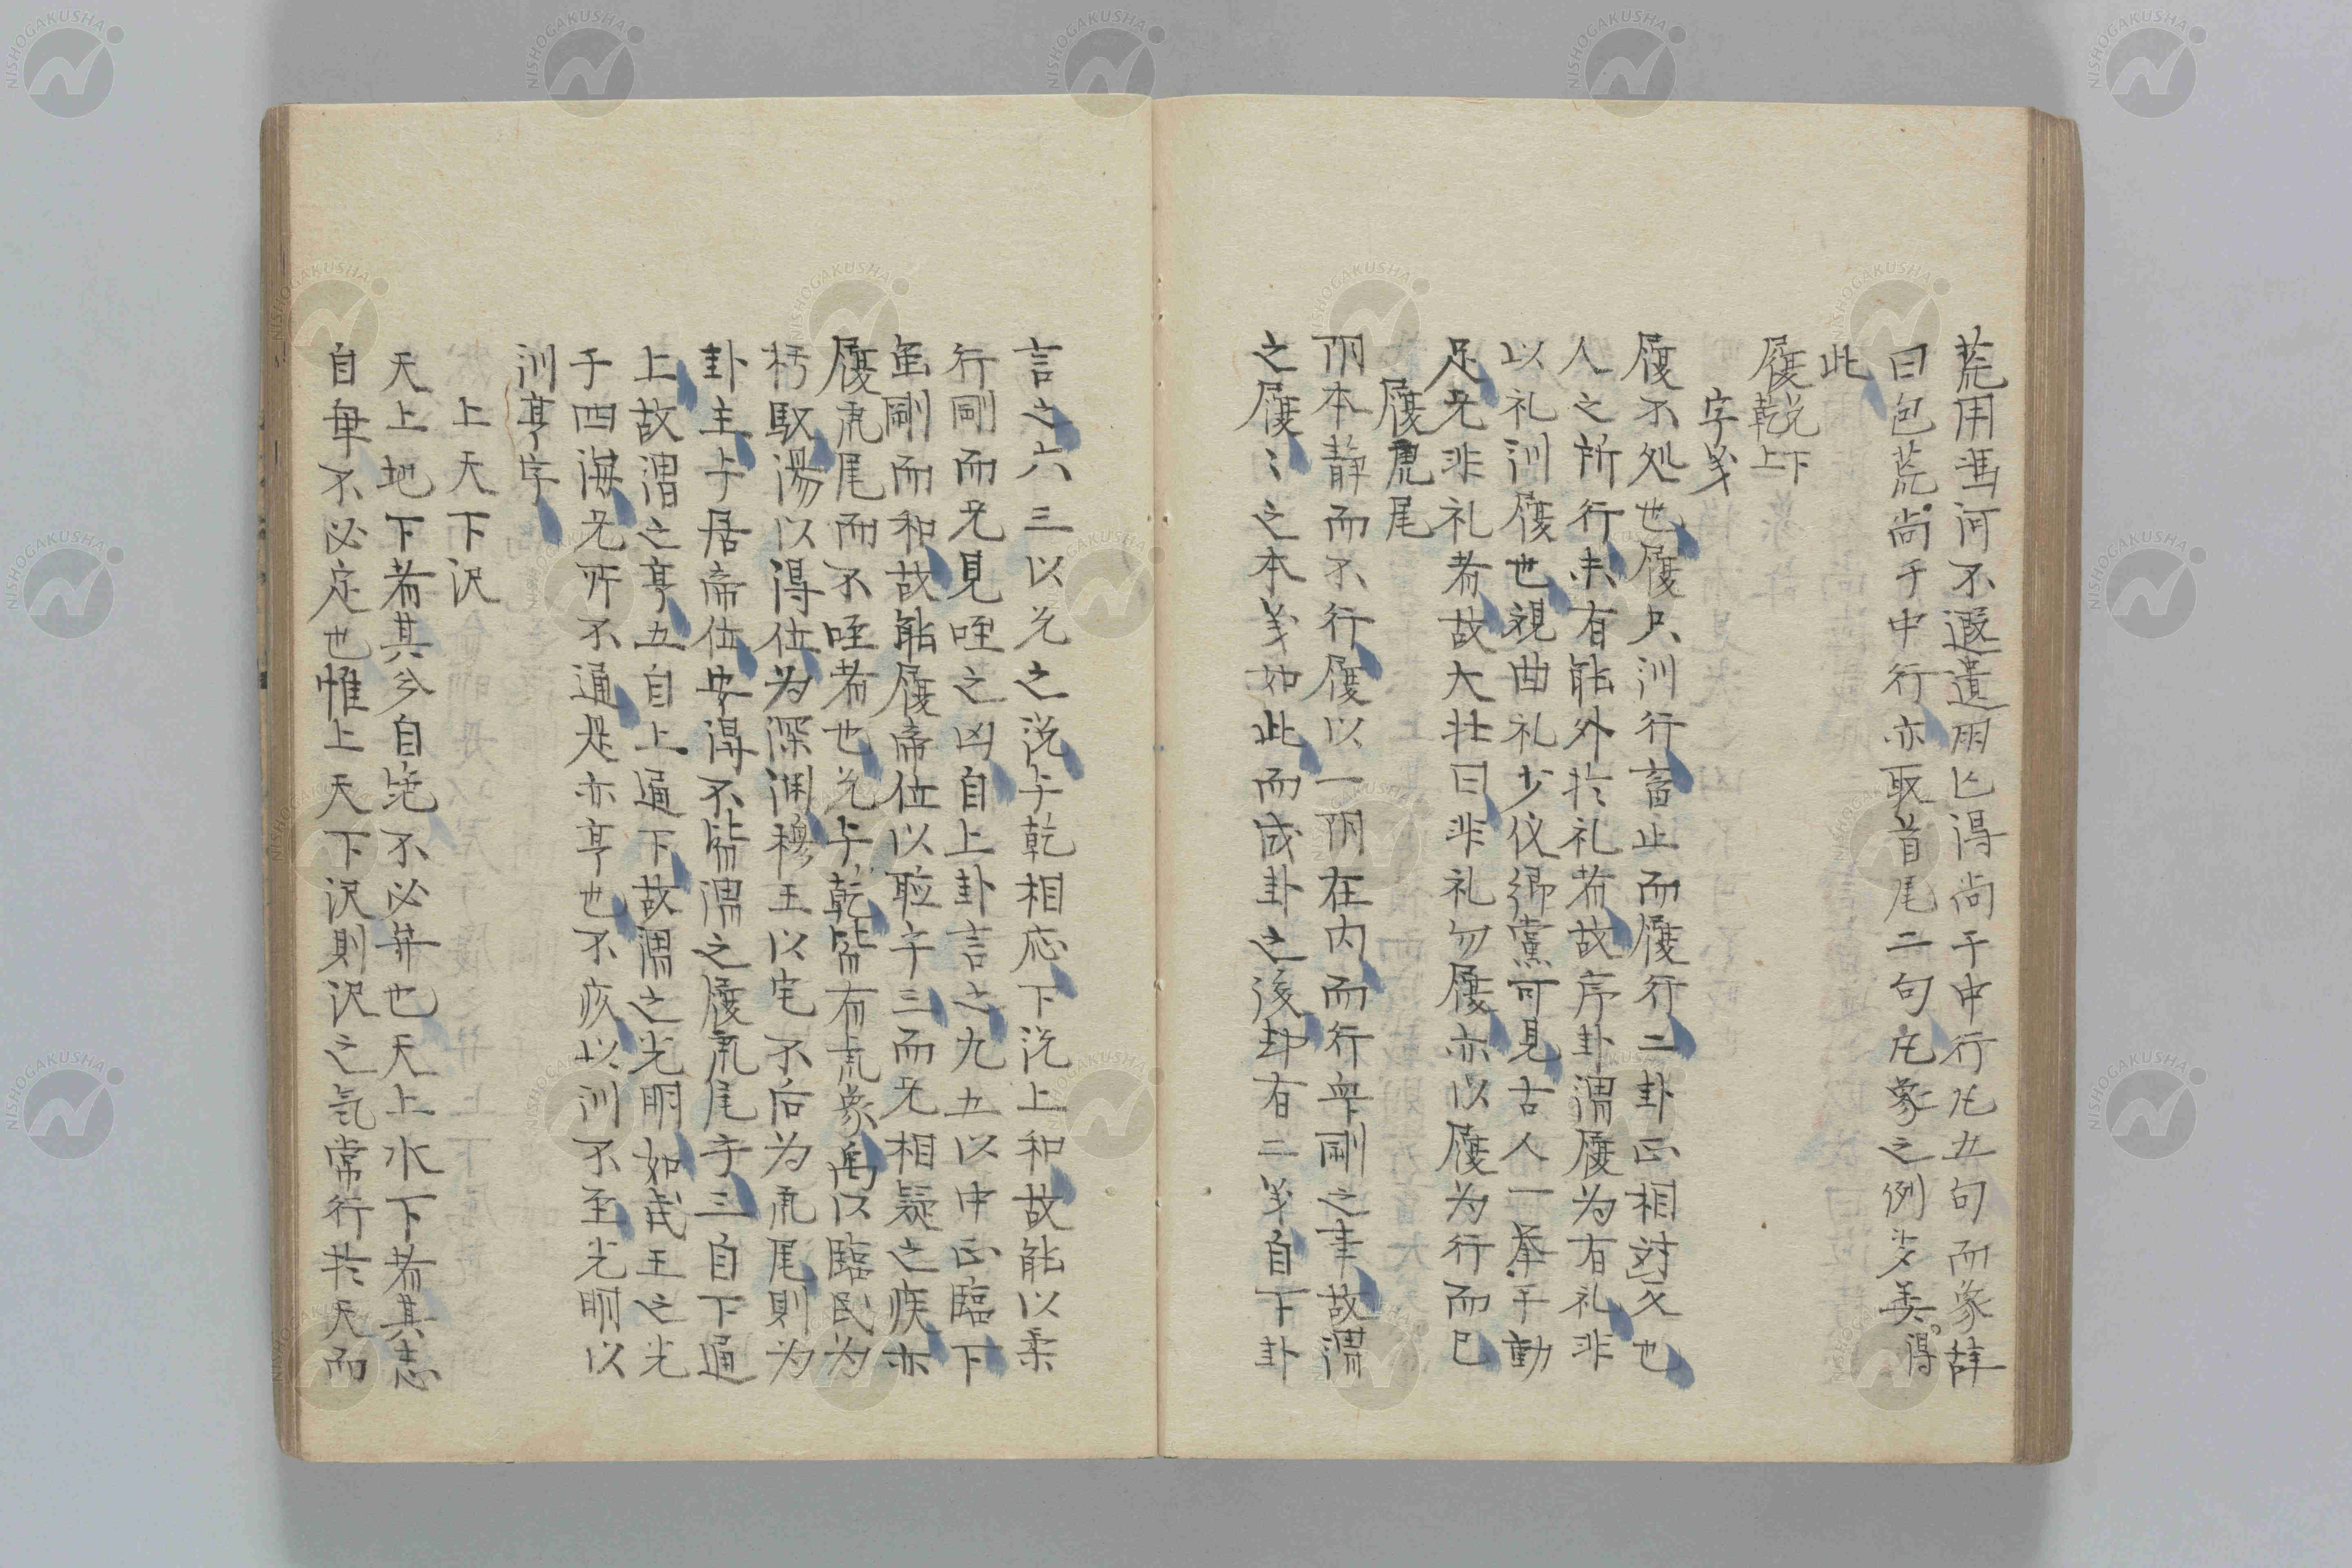 荒用馮河不遐遺朋亡得尚于中行凡五句而象辞
曰包荒尚于中行亦取首尾二句凡象之例多美得
此
履兌下乾上
字义
履不処也履只訓行畜止而履行二卦正相対久也
人之所行未有能外於礼者故序卦謂履为有礼非
以礼訓履也視曲礼少仪郷党可見古人一挙手動
足无非礼者故大壮曰非礼勿履亦以履为行而已
履虎尾
阴本静而不行履以一阴在内而行衆剛之事故謂
之履〻之本义如此而成卦之後却有二义自下卦
言之六三以兌之说与乾相応下说上和故能以柔
行剛而无見咥之凶自上卦言之九五以中正臨下
虽剛而和故能履帝位以莅乎三而无相疑之疾亦
履虎尾而不咥者也兌与乾皆有虎象禹以臨民为
朽馭湯以得位为深渊穆王以宅不后为虎尾則为
卦主与居帝位安得不皆謂之履虎尾乎三自下通
上故謂之亨五自上通下故謂之光明如武王之光
于四海无所不通是亦亨也不疚以訓不至光明以
訓亨字
上天下沢
天上地下者其分自定不必弁也天上水下者其志
自卑不必定也惟上天下沢則沢之気常行於天而